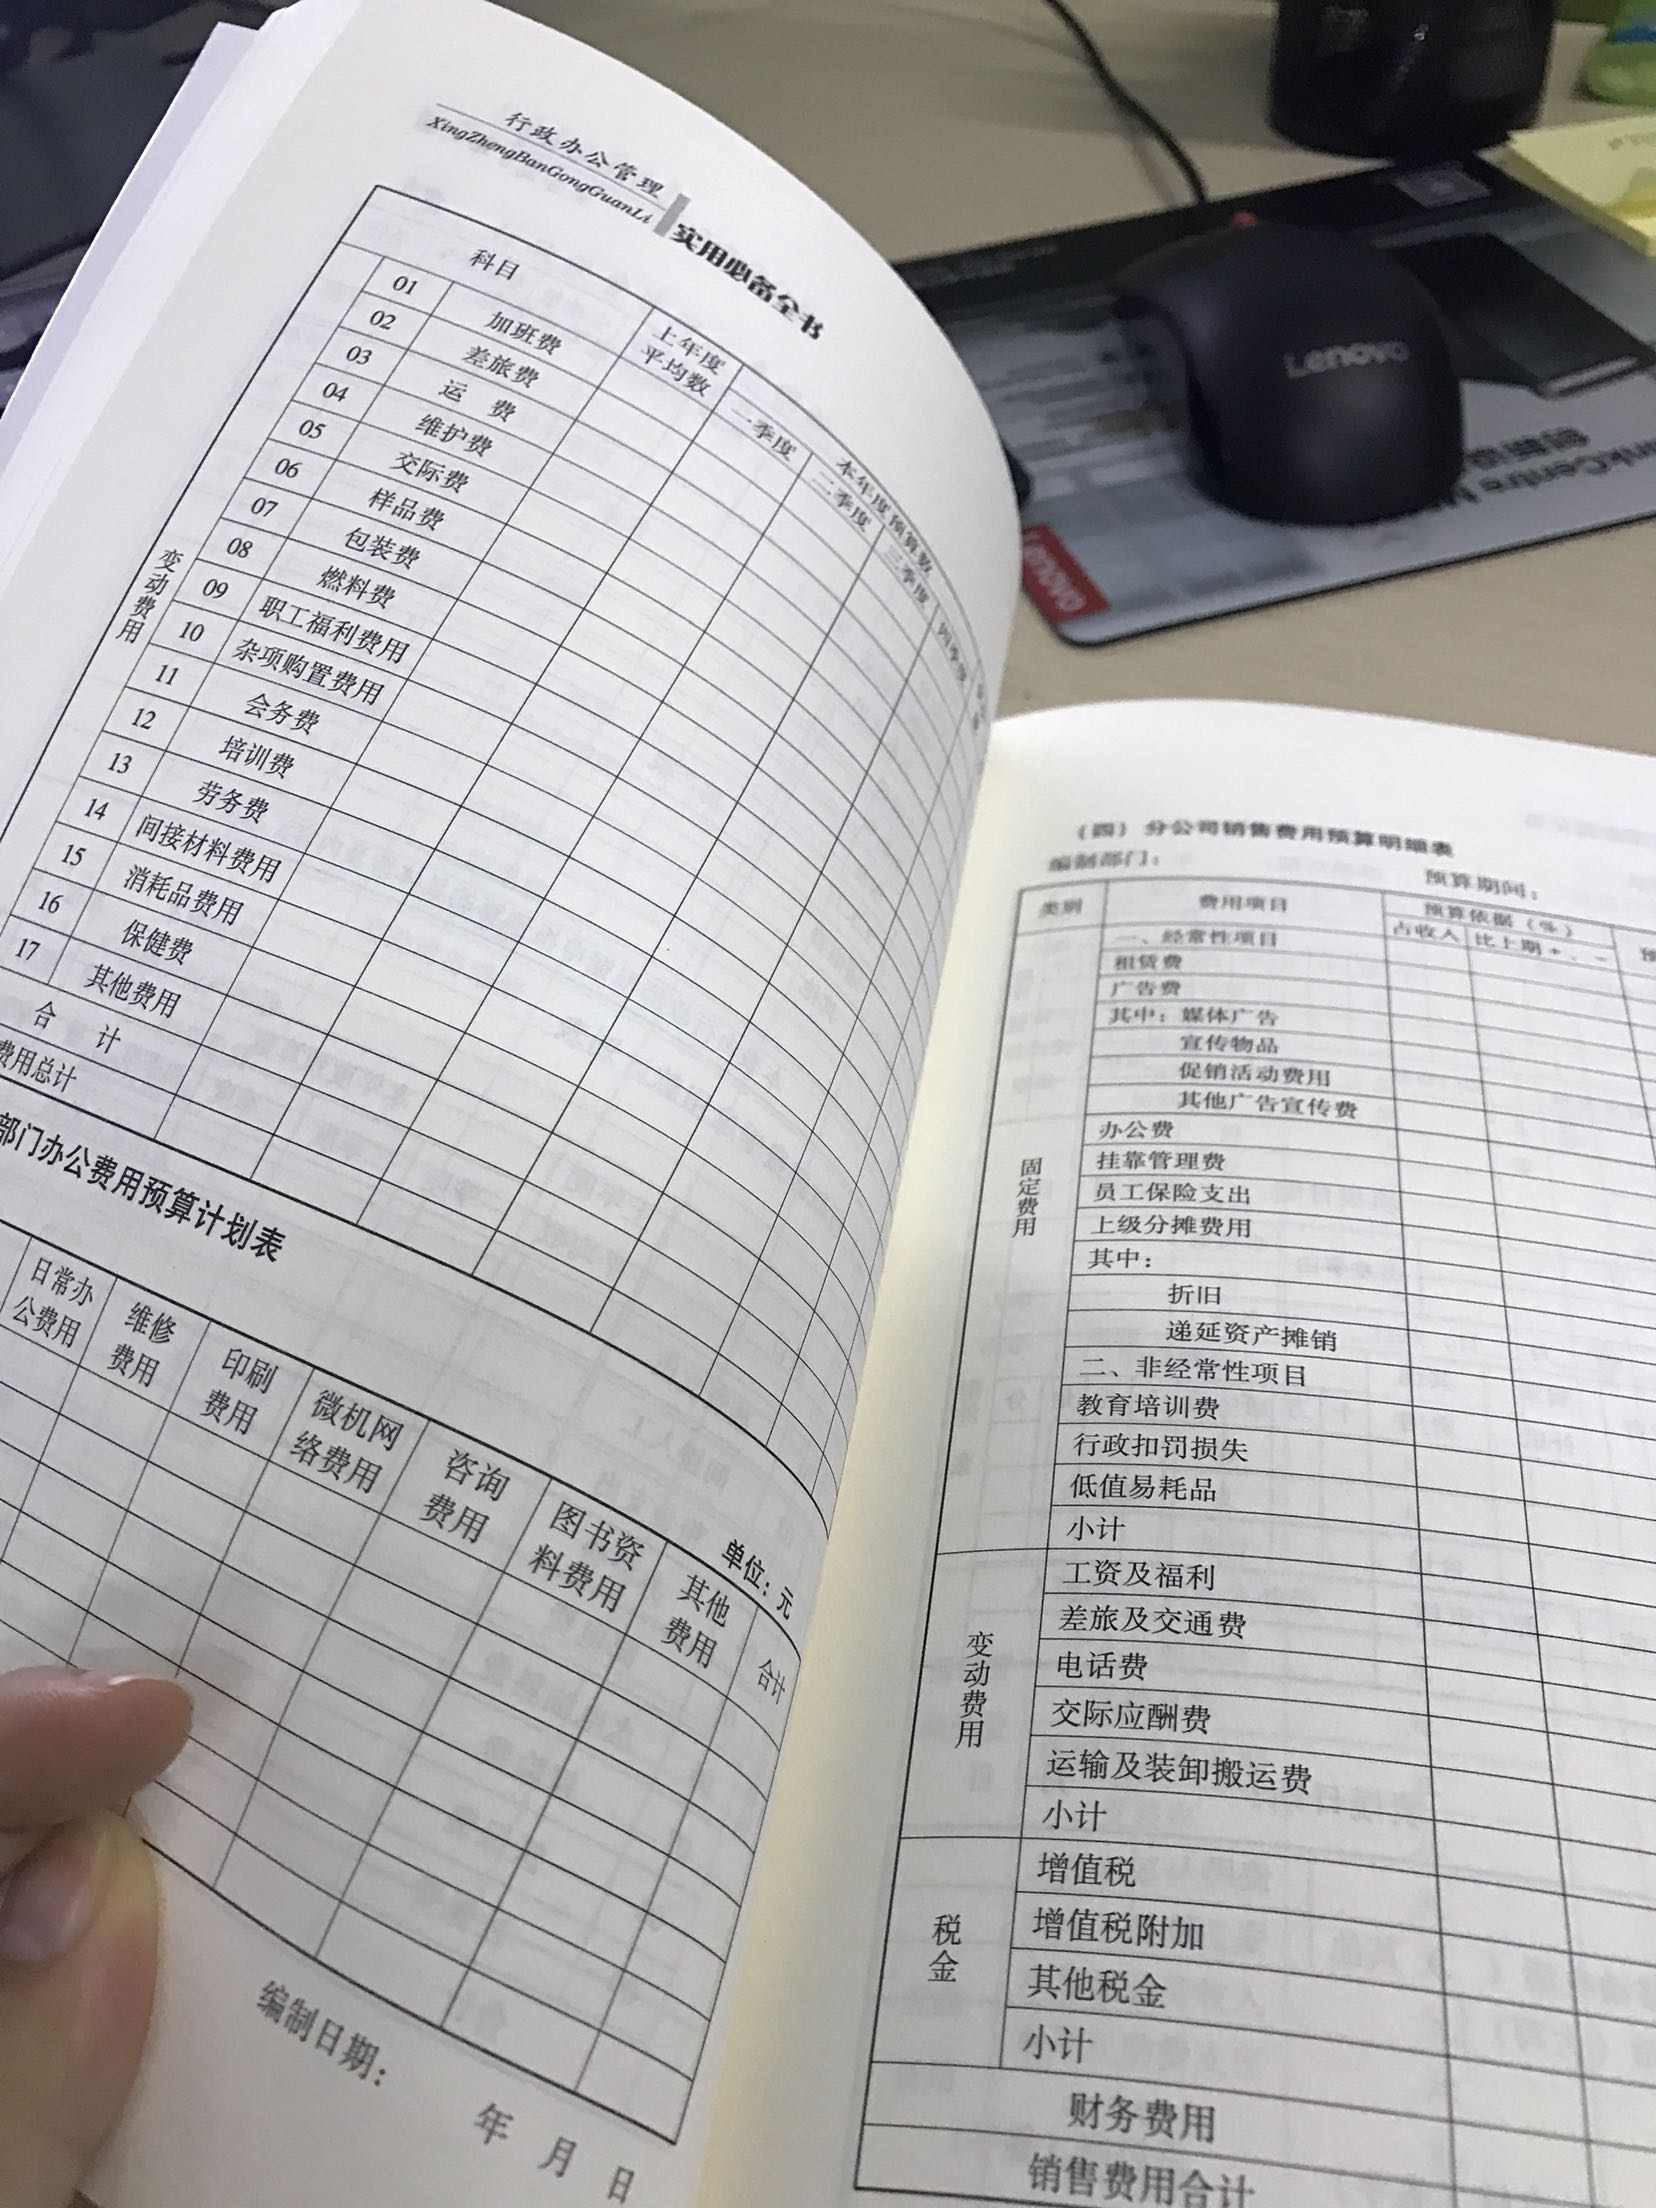 行政办公管理
XingZhengBanGongGuanLi
实用必备全书
科目
上年度
平均数
本年度预算数
一季度
二季度
三季度
四季度
变动费用
01 加班费
02 差旅费
03 运 费
04 维护费
05 交际费
06 样品费
07 包装费
08 燃料费
09 职工福利费用
10 杂项购置费用
11 会务费
12 培训费
13 劳务费
14 间接材料费用
15 消耗品费用
16 保健费
17 其他费用
合 计
费用总计
部门办公费用预算计划表
单位：元
日常办
公费用
维修
费用
印刷
费用
微机网
络费用
咨询
费用
图书资
料费用
其他
费用
合计
编制日期：
年 月 日
（四）分公司销售费用预算明细表
编制部门：
预算期间：
类别
费用项目
预算依据（%）
占收入
比上期+、-
预
固定费用
一、经常性项目
租赁费
广告费
其中：媒体广告
宣传物品
促销活动费用
其他广告宣传费
办公费
挂靠管理费
员工保险支出
上级分摊费用
其中：
折旧
递延资产摊销
二、非经常性项目
教育培训费
行政扣罚损失
低值易耗品
小计
变动费用
工资及福利
差旅及交通费
电话费
交际应酬费
运输及装卸搬运费
小计
税金
增值税
增值税附加
其他税金
小计
财务费用
销售费用合计
Lenovo
Lenovo
nkCentre M